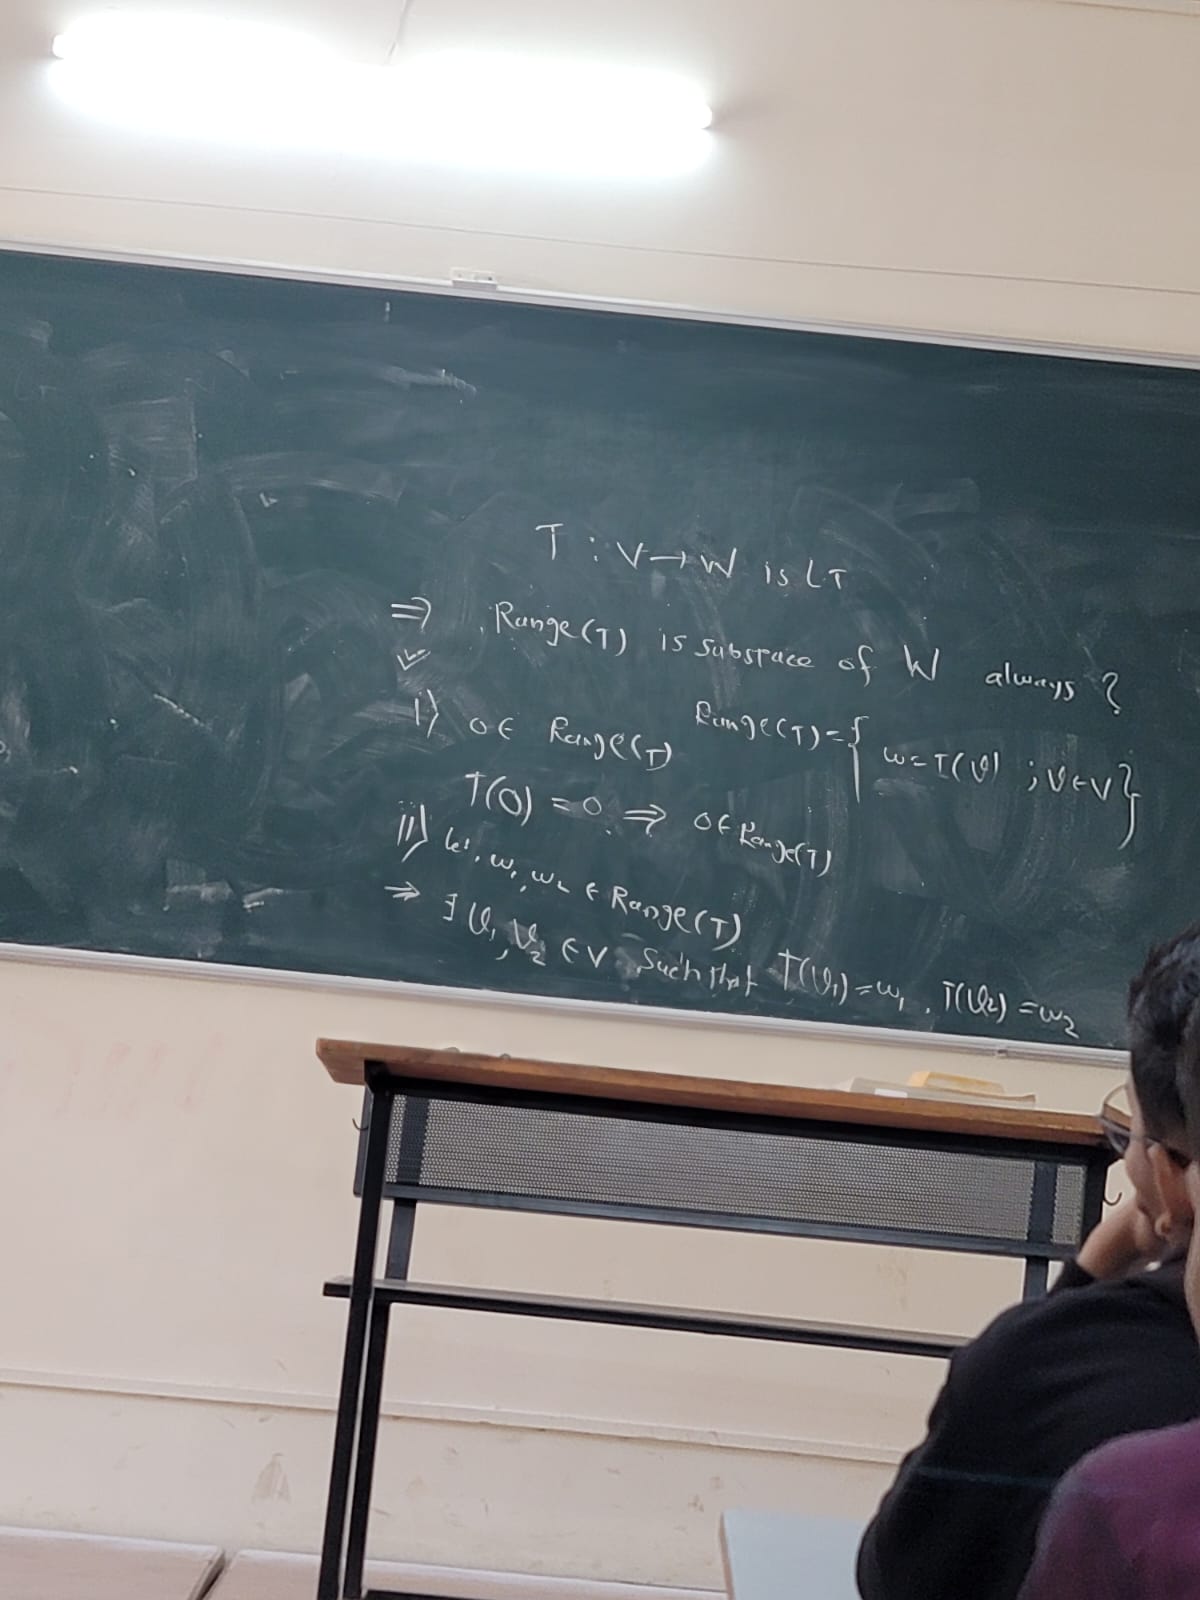 T : V → W is LT
⇒ Range(T) is substace of W always ?
i) 0 ∈ Range(T) Range(T) = { w = T(v) ; v ∈ V }
T(0) = 0 ⇒ 0 ∈ Range(T)
ii) let, w₁, w₂ ∈ Range(T)
⇒ ∃ v₁, v₂ ∈ V such that T(v₁) = w₁ , T(v₂) = w₂